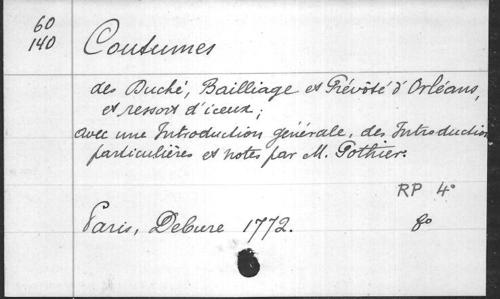 60
140
Coutumes
des Duché, Bailliage et Prévôté d'Orléans,
et ressort d'iceux;
avec une Introduction générale, des Introduction
particulières et notes par M. Pothier.
RP 4°
Paris, Debure 1772. fo